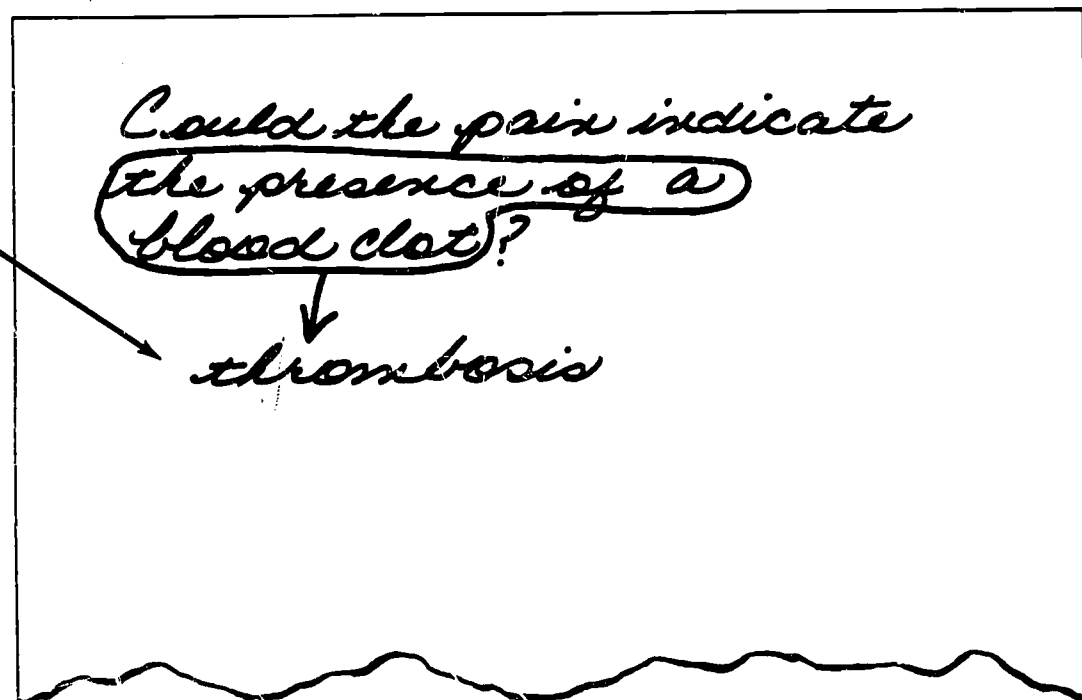 Could the pain indicate
the presence of a
blood clot?
thrombosis